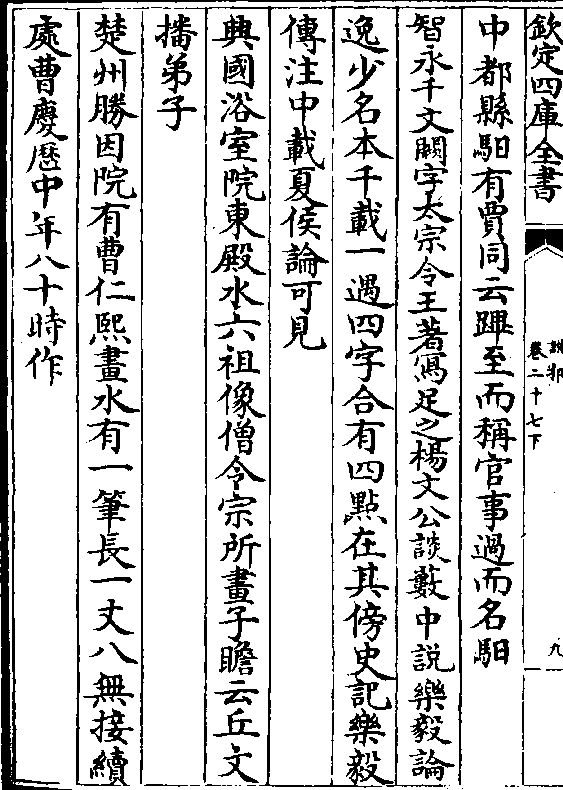 欽定四庫全書
說郛
卷二十七下
九
中都縣馹有賈同云蹕至而稱官事過而名馹
智永千文闕字太宗令王著寫足之楊文公談藪中說樂毅論
逸少名本千載一遇四字合有四點在其傍史記樂毅
傳注中載夏侯論可見
興國浴室院東殿水六祖像僧令宗所畫子瞻云丘文
播弟子
楚州勝因院有曹仁熙畫水有一筆長一丈八無接續
處曹慶歷中年八十時作